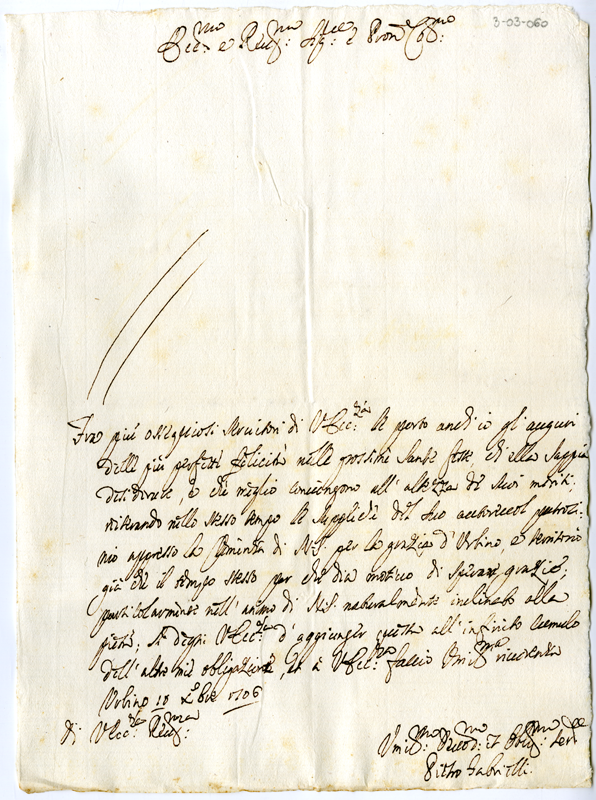 3-03-060
Ecc.mo e Rev.mo Sig.re e Pron Col.mo
Fra più ossequiosi servitori di V. Ecc.za le porto anch'io gl'auguri
delle più perfette felicità nelle prossime sante feste, ch'ella sappia
desiderare, e che meglio convengono all'altezza de suoi meriti;
reiterando nello stesso tempo le suppliche del suo autorevol patroci-
nio appresso la Clemenza di N.S. per la grazia d'Urbino, e territorio
già che il tempo stesso par che dia motivo di sperar grazie,
particolarmente nell'animo di N.S. naturalmente inclinato alla
pietà; Si degni V. Ecc.za d'aggiunger questa all'infinito cumulo
dell'altre mie obligazioni, et a V. Ecc.za faccio Umil.ma riverenza
Urbino 10 Xbre 1706
di V. Ecc.za Rev.ma
Umil.mo Devot.mo et Oblig.mo Ser.re
Pietro Gabrielli.